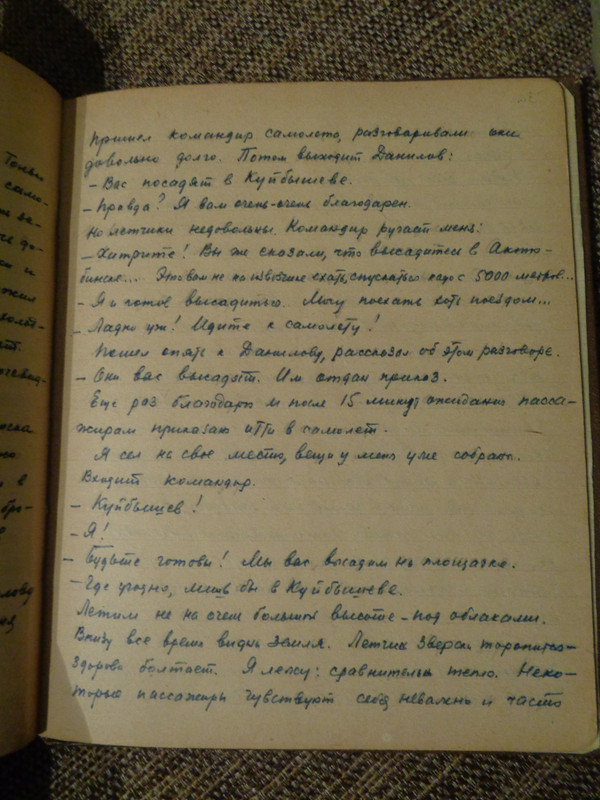 Только
само-
за-
до-
и
ска
в
бра-
лову
Пришел командир самолета, разговаривали они
довольно долго. Потом выходит Данилов:
– Вас посадят в Куйбышеве.
– Правда? Я вам очень-очень благодарен.
Но летчики недовольны. Командир ругает меня:
– Хитрите! Вы же сказали, что высадитесь в Актю-
бинске... Это вам не на извозчике ехать, спускаться надо с 5000 метров...
– Я и готов высадиться. Могу поехать хоть поездом...
– Ладно уж! Идите к самолету!
Пошел опять к Данилову, рассказал об этом разговоре.
– Они вас высадят. Им отдан приказ.
Еще раз благодарю и после 15 минут ожидания пасса-
жирам приказано итти в самолет.
Я сел на свое место, вещи у меня уже собраны.
Входит командир.
– Куйбышев!
– Я!
– Будьте готовы! Мы вас высадим на площадке.
– Где угодно, лишь бы в Куйбышеве.
Летим не на очень большой высоте – под облаками.
Внизу все время видна земля. Летчик зверски торопится –
здорово болтает. Я лежу: сравнительно тепло. Неко-
торые пассажиры чувствуют себя неважно и часто